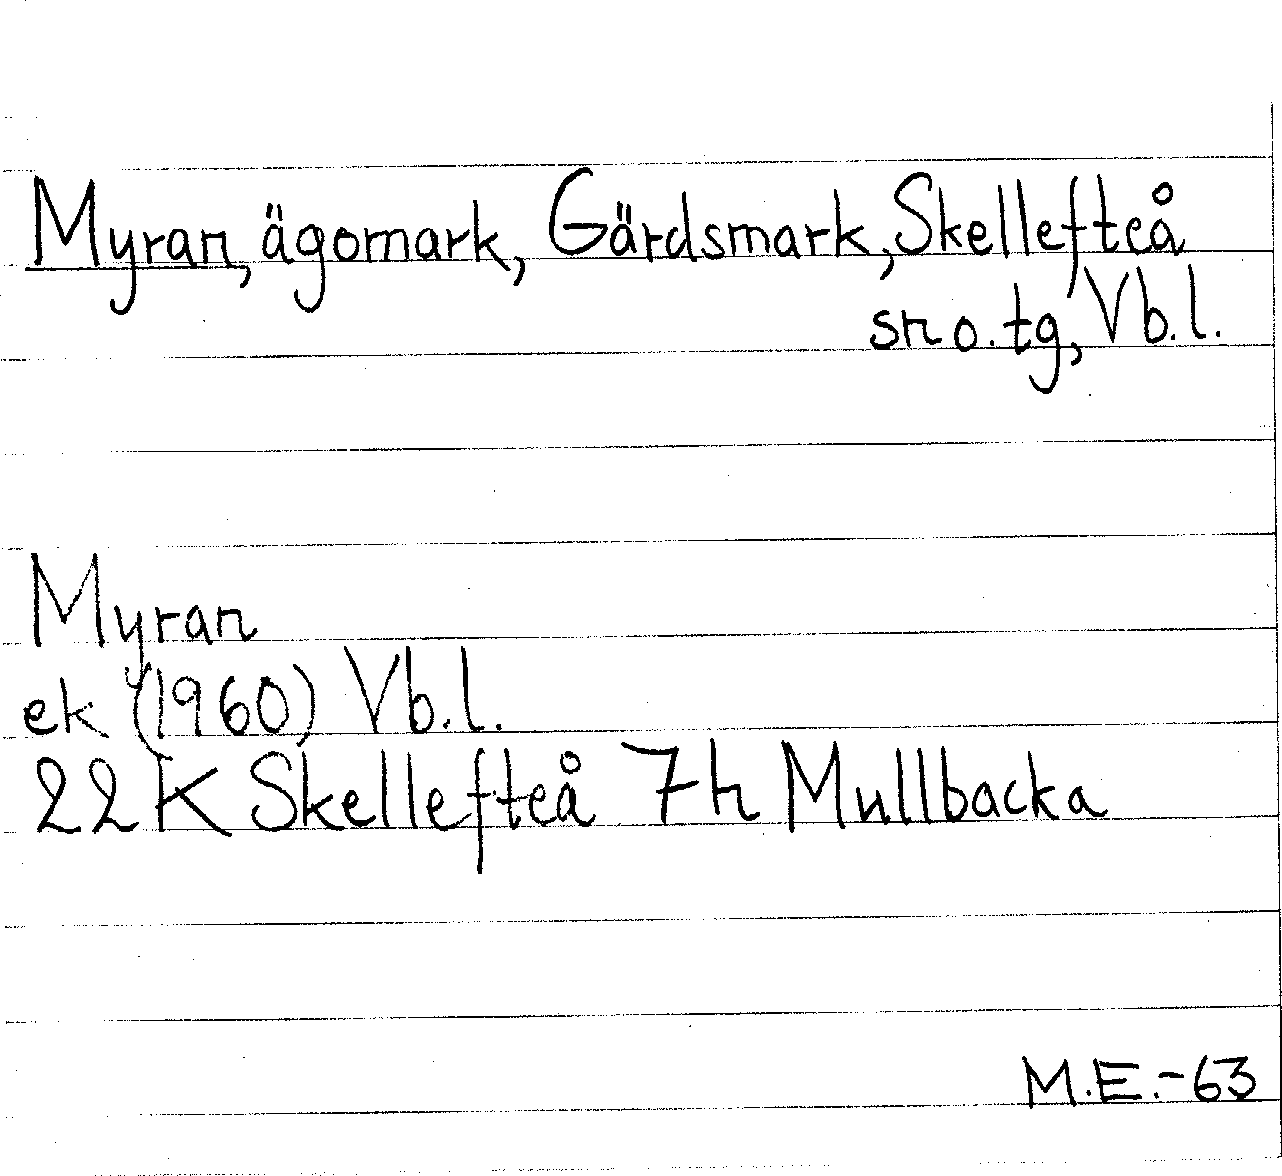 Myran, ägomark, Gärdsmark, Skellefteå
sn o. tg, Vb.l.
Myran
ek (1960) Vb.l.
22K Skellefteå 7h Mullbacka
M.E.-63